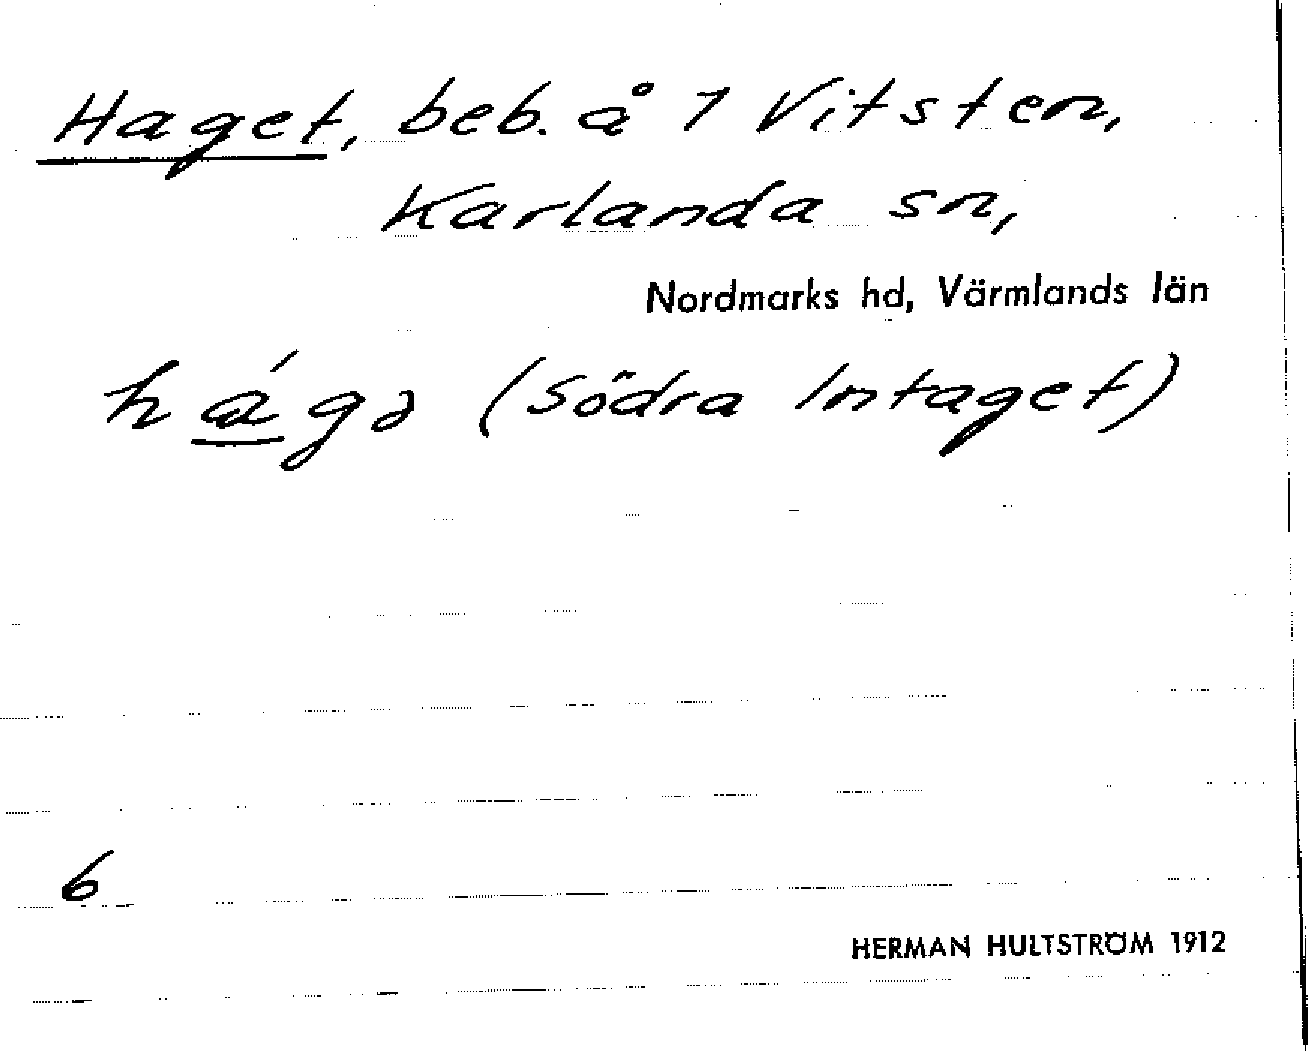 Haget, beb. å 1 Vitsten,
Karlanda sn,
Nordmarks hd, Värmlands län
há̲gə (Södra Intaget)
6
HERMAN HULTSTRÖM 1912